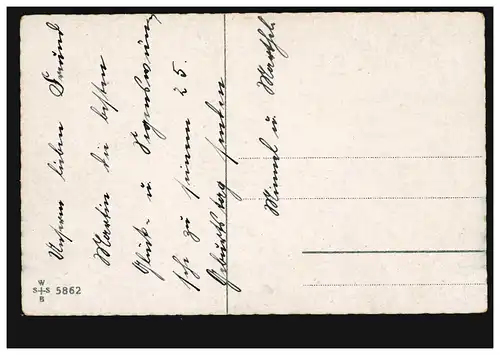 Unserm lieben Freund
Martin die besten
Glück- u. Segenswün
sche zu seinem 25.
Geburtstag senden
Minnel u. Marthel.
W
S+S
B
5862